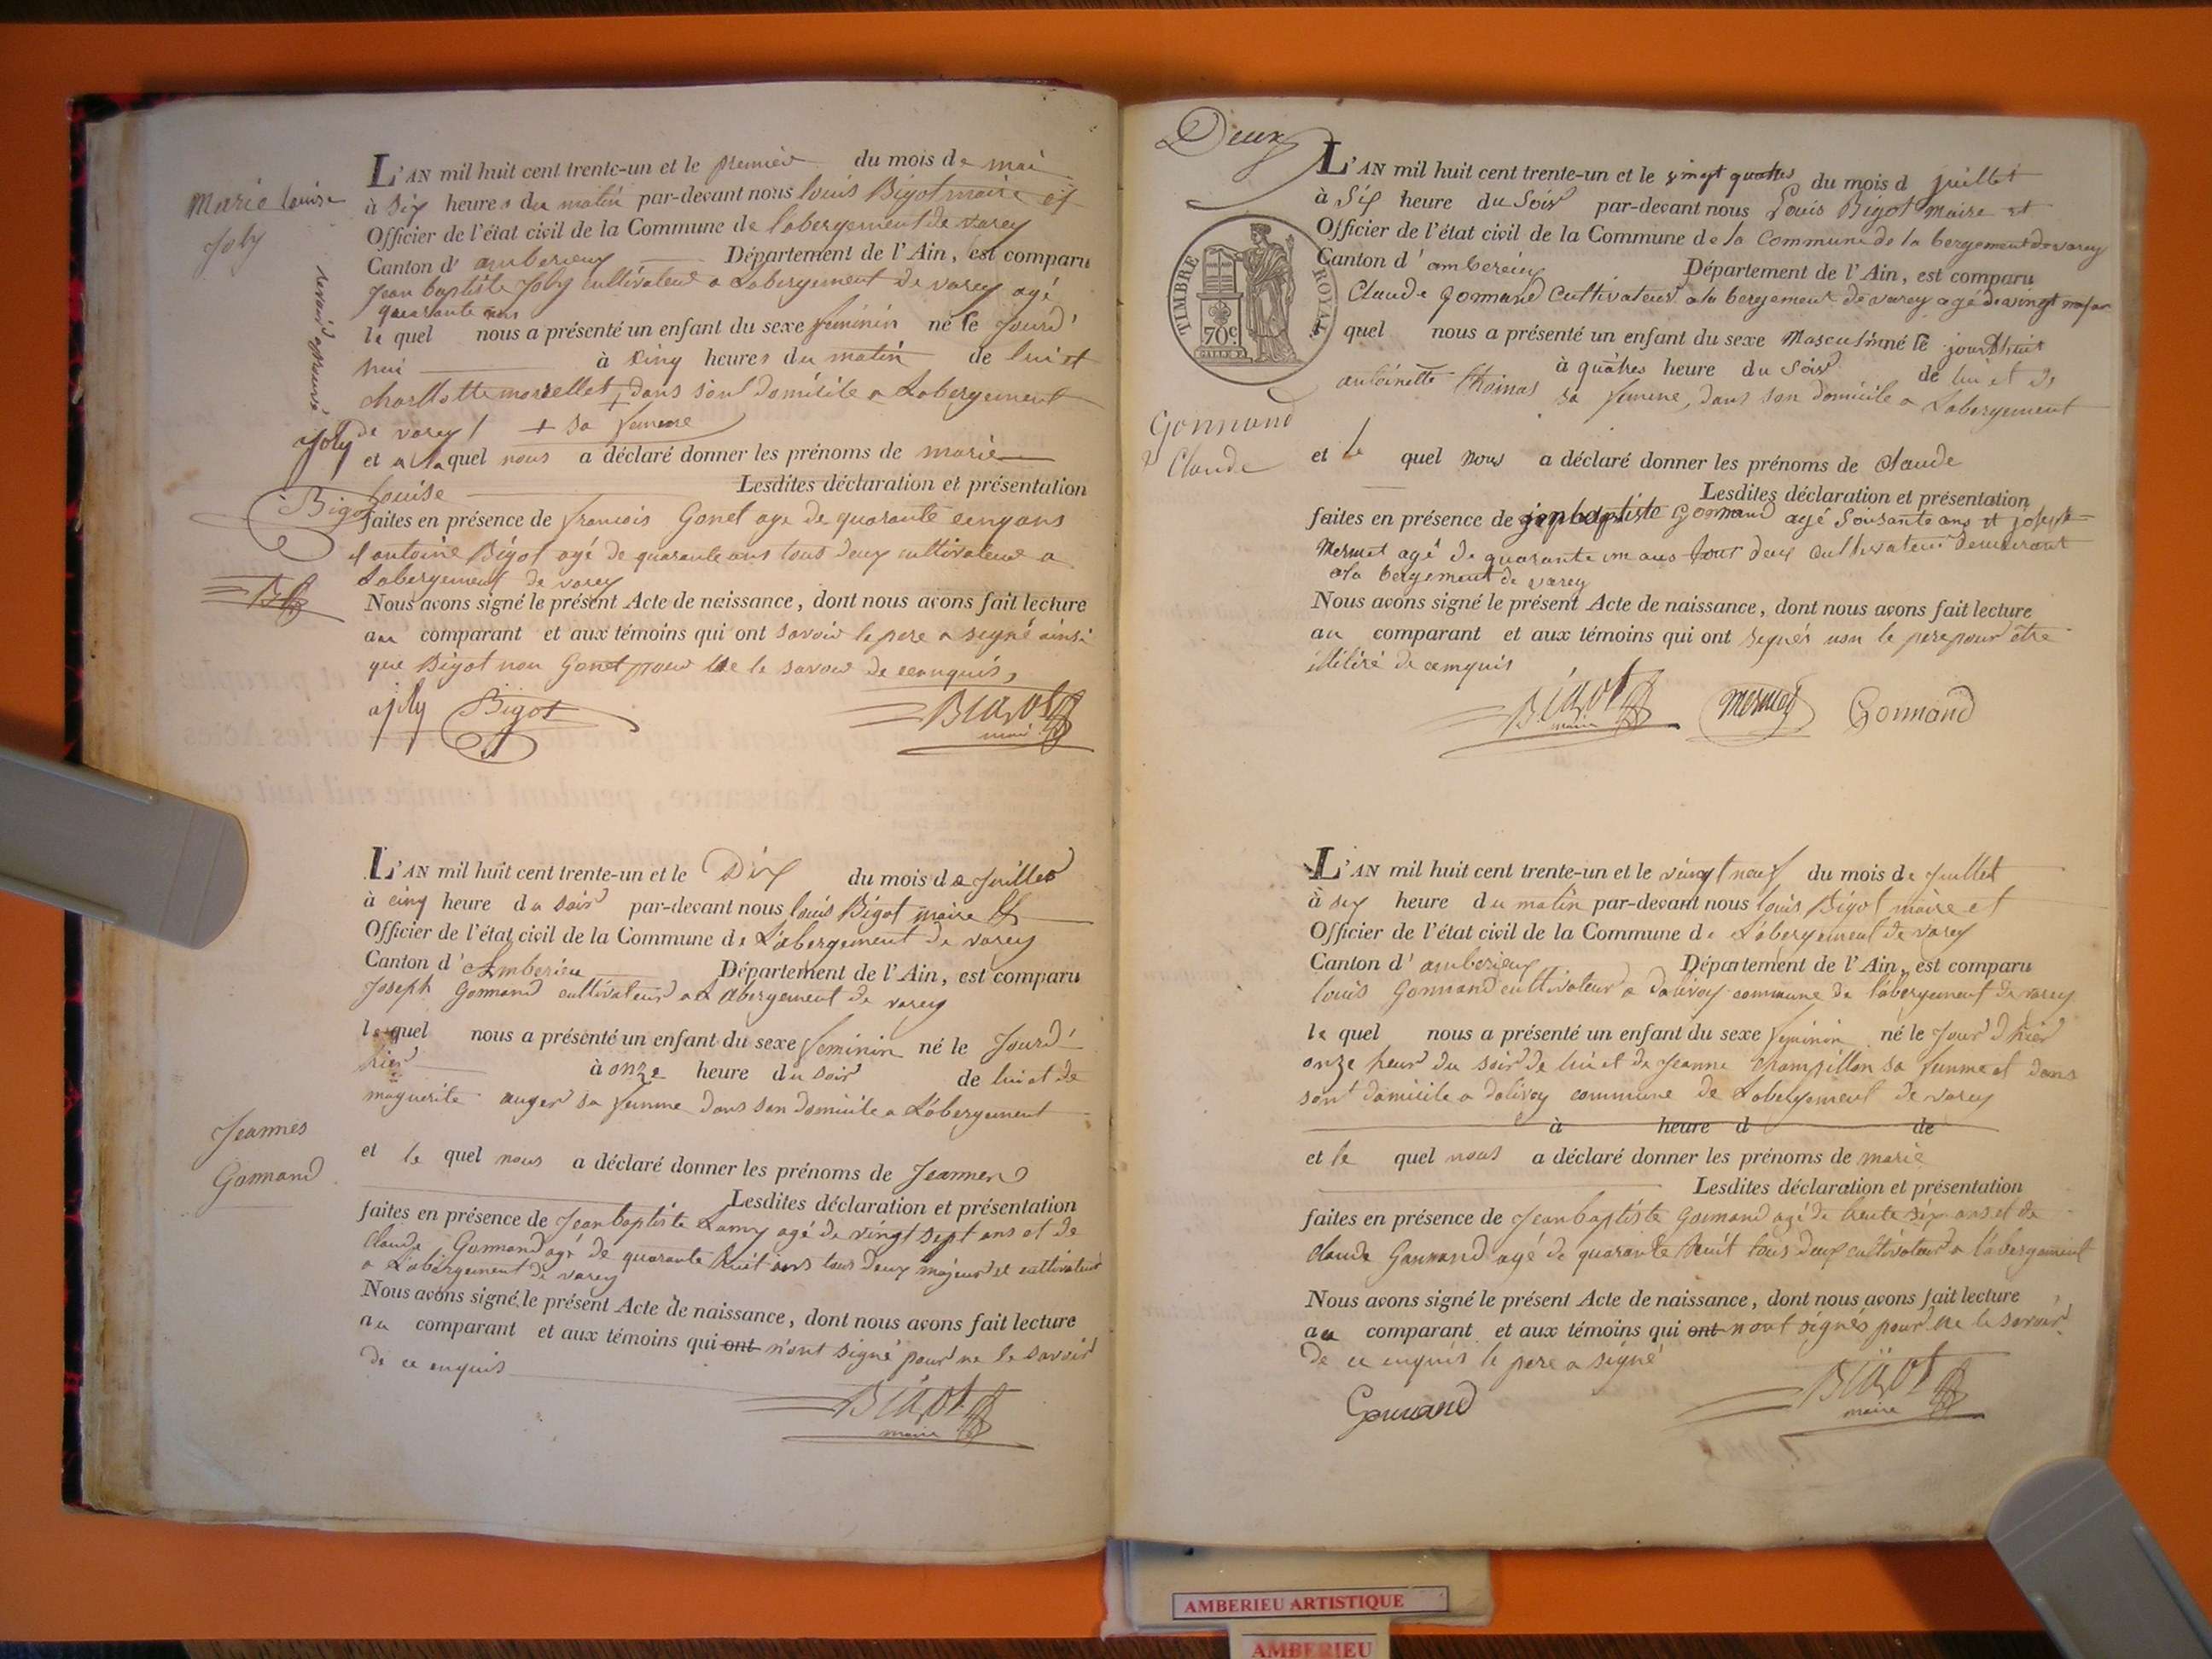 Marie Louise
Joly
L'AN mil huit cent trente-un et le premier du mois de mai
à six heures du matin par-devant nous louis Bigot maire et
Officier de l'état civil de la Commune de l'abergement de varey
Canton d'amberieux Département de l'Ain, est comparu
Jean baptiste Joly cultivateur a Labergement de varey agé
quarante ans
le quel nous a présenté un enfant du sexe feminin né le Jourd'
hui à cinq heures du matin de lui et
charllotte marcellet + dans son domicile a Labergement
de varey / + sa femme
et a la quel nous a déclaré donner les prénoms de marie
Louise Lesdites déclaration et présentation
faites en présence de francois Gonet age de quarante cinq ans
et antoine Bigot agé de quarante ans tous deux cultivateur a
Labergement de varey
Nous avons signé le présent Acte de naissance, dont nous avons fait lecture
au comparant et aux témoins qui ont savoir le pere a segné ainsi
que Bigot non Gonet pour ne le savoir de ce enquis,
ajoly Bigot Bigot
maire
Joly
Bigot
L'AN mil huit cent trente-un et le Dix du mois de Juillet
à cinq heure du soir par-devant nous louis Bigot maire et
Officier de l'état civil de la Commune de L'abergement de varey
Canton d'Amberieu Département de l'Ain, est comparu
Joseph Gonnand cultivateur a L'abergement de varey
le quel nous a présenté un enfant du sexe feminin né le Jourd'
hier à onze heure du soir de lui et de
maguerite auger sa femme dans son domicile a L'abergement
Jeannes
Gonnand
et le quel nous a déclaré donner les prénoms de Jeannes
Lesdites déclaration et présentation
faites en présence de Jean baptiste Lamy agé de vingt sept ans et de
claude Gonnand agé de quarante huit ans tous deux majeur et cultivateur
a L'abergement de varey
Nous avons signé le présent Acte de naissance, dont nous avons fait lecture
au comparant et aux témoins qui ont n'ont signé pour ne le savoir
de ce enquis
Bigot
maire
Deux
L'AN mil huit cent trente-un et le vingt quatres du mois d juillet
à Six heure du Soir par-devant nous Louis Bigot Maire et
Officier de l'état civil de la Commune de la Commune de la bergement de varey
Canton d'amberieu Département de l'Ain, est comparu
Claude gonnand Cultivateur a la bergement de varey agé de vingt neuf an
TIMBRE ROYAL
70c
quel nous a présenté un enfant du sexe Masculin né le jourdhuit
à quâtres heure du Soir de lui et de
antoinette thoinas sa femme, dans son domicile a Labergement
Gonnand
Claude
et le quel nous a déclaré donner les prénoms de Claude
Lesdites déclaration et présentation
faites en présence de jeanbaptiste gonnand agé Soixante ans et joseph
Mermet agé de quarante un ans tout deux Cultivateur demeurant
a la bergement de varey
Nous avons signé le présent Acte de naissance, dont nous avons fait lecture
au comparant et aux témoins qui ont segnés non le pere pour être
illitéré de cenquis
Bigot mermet Gonnand
maire
L'AN mil huit cent trente-un et le vingt neuf du mois de Juillet
à six heure du matin par-devant nous louis Bigot maire et
Officier de l'état civil de la Commune de L'abergement de varey
Canton d'amberieux Département de l'Ain, est comparu
louis Gonnand cultivateur a dalivoy commune de l'abergement de varey
le quel nous a présenté un enfant du sexe feminin né le Jour d'hier
onze heur du soir de lui et de Jeanne Champillon sa femme et dans
son domicile a dalivoy commune de Labergement de varey
à heure d de
et le quel nous a déclaré donner les prénoms de marie
Lesdites déclaration et présentation
faites en présence de Jean baptiste Gonnand agé de trente six ans et de
claude Gannand agé de quarante huit tous deux cultivateur a l'abergement
Nous avons signé le présent Acte de naissance, dont nous avons fait lecture
au comparant et aux témoins qui ont n'ont signés pour ne le savoir
de ce enquis le pere a signé
Gonnand Bigot
maire
AMBERIEU ARTISTIQUE
AMBERIEU